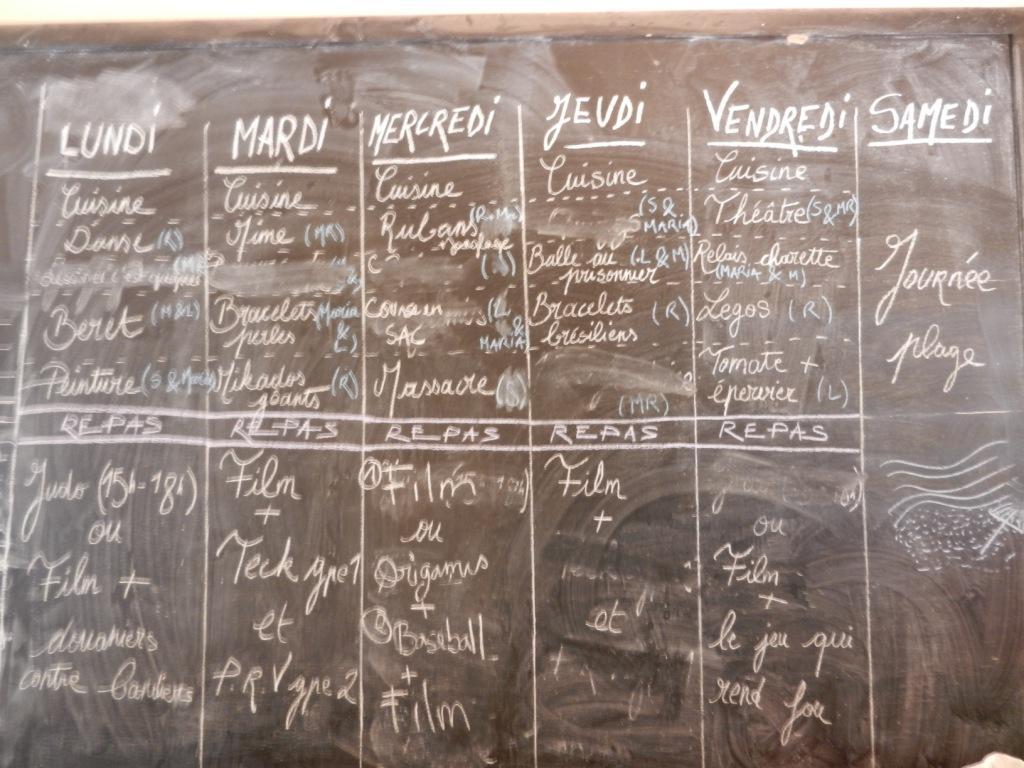 LUNDI
Cuisine
Danse (R)
Beret (M&L)
Peinture (S & Maria)
REPAS
Judo (15h-18h)
ou
Film +
douaniers
contre bandiers
MARDI
Cuisine
Mime (MR)
Bracelets (Maria
perles & L)
Mikados (R)
géants
REPAS
Film
+
Teck gpe 1
et
P.R.V gpe 2
MERCREDI
Cuisine
Rubans
SAC
MARIA)
Massacre (S)
REPAS
① Film
ou
Origamis
+
② Baseball
+
Film
JEUDI
Cuisine
(S &
MARIA)
Balle au (L & M)
prisonnier
Bracelets (R)
brésiliens
(MR)
REPAS
Film
+
et
VENDREDI
Cuisine
Théâtre (S & MR)
Relais charette
(MARIA & M)
Legos (R)
Tomate +
épervier (L)
REPAS
ou
Film
+
le jeu qui
rend fou
SAMEDI
Journée
plage